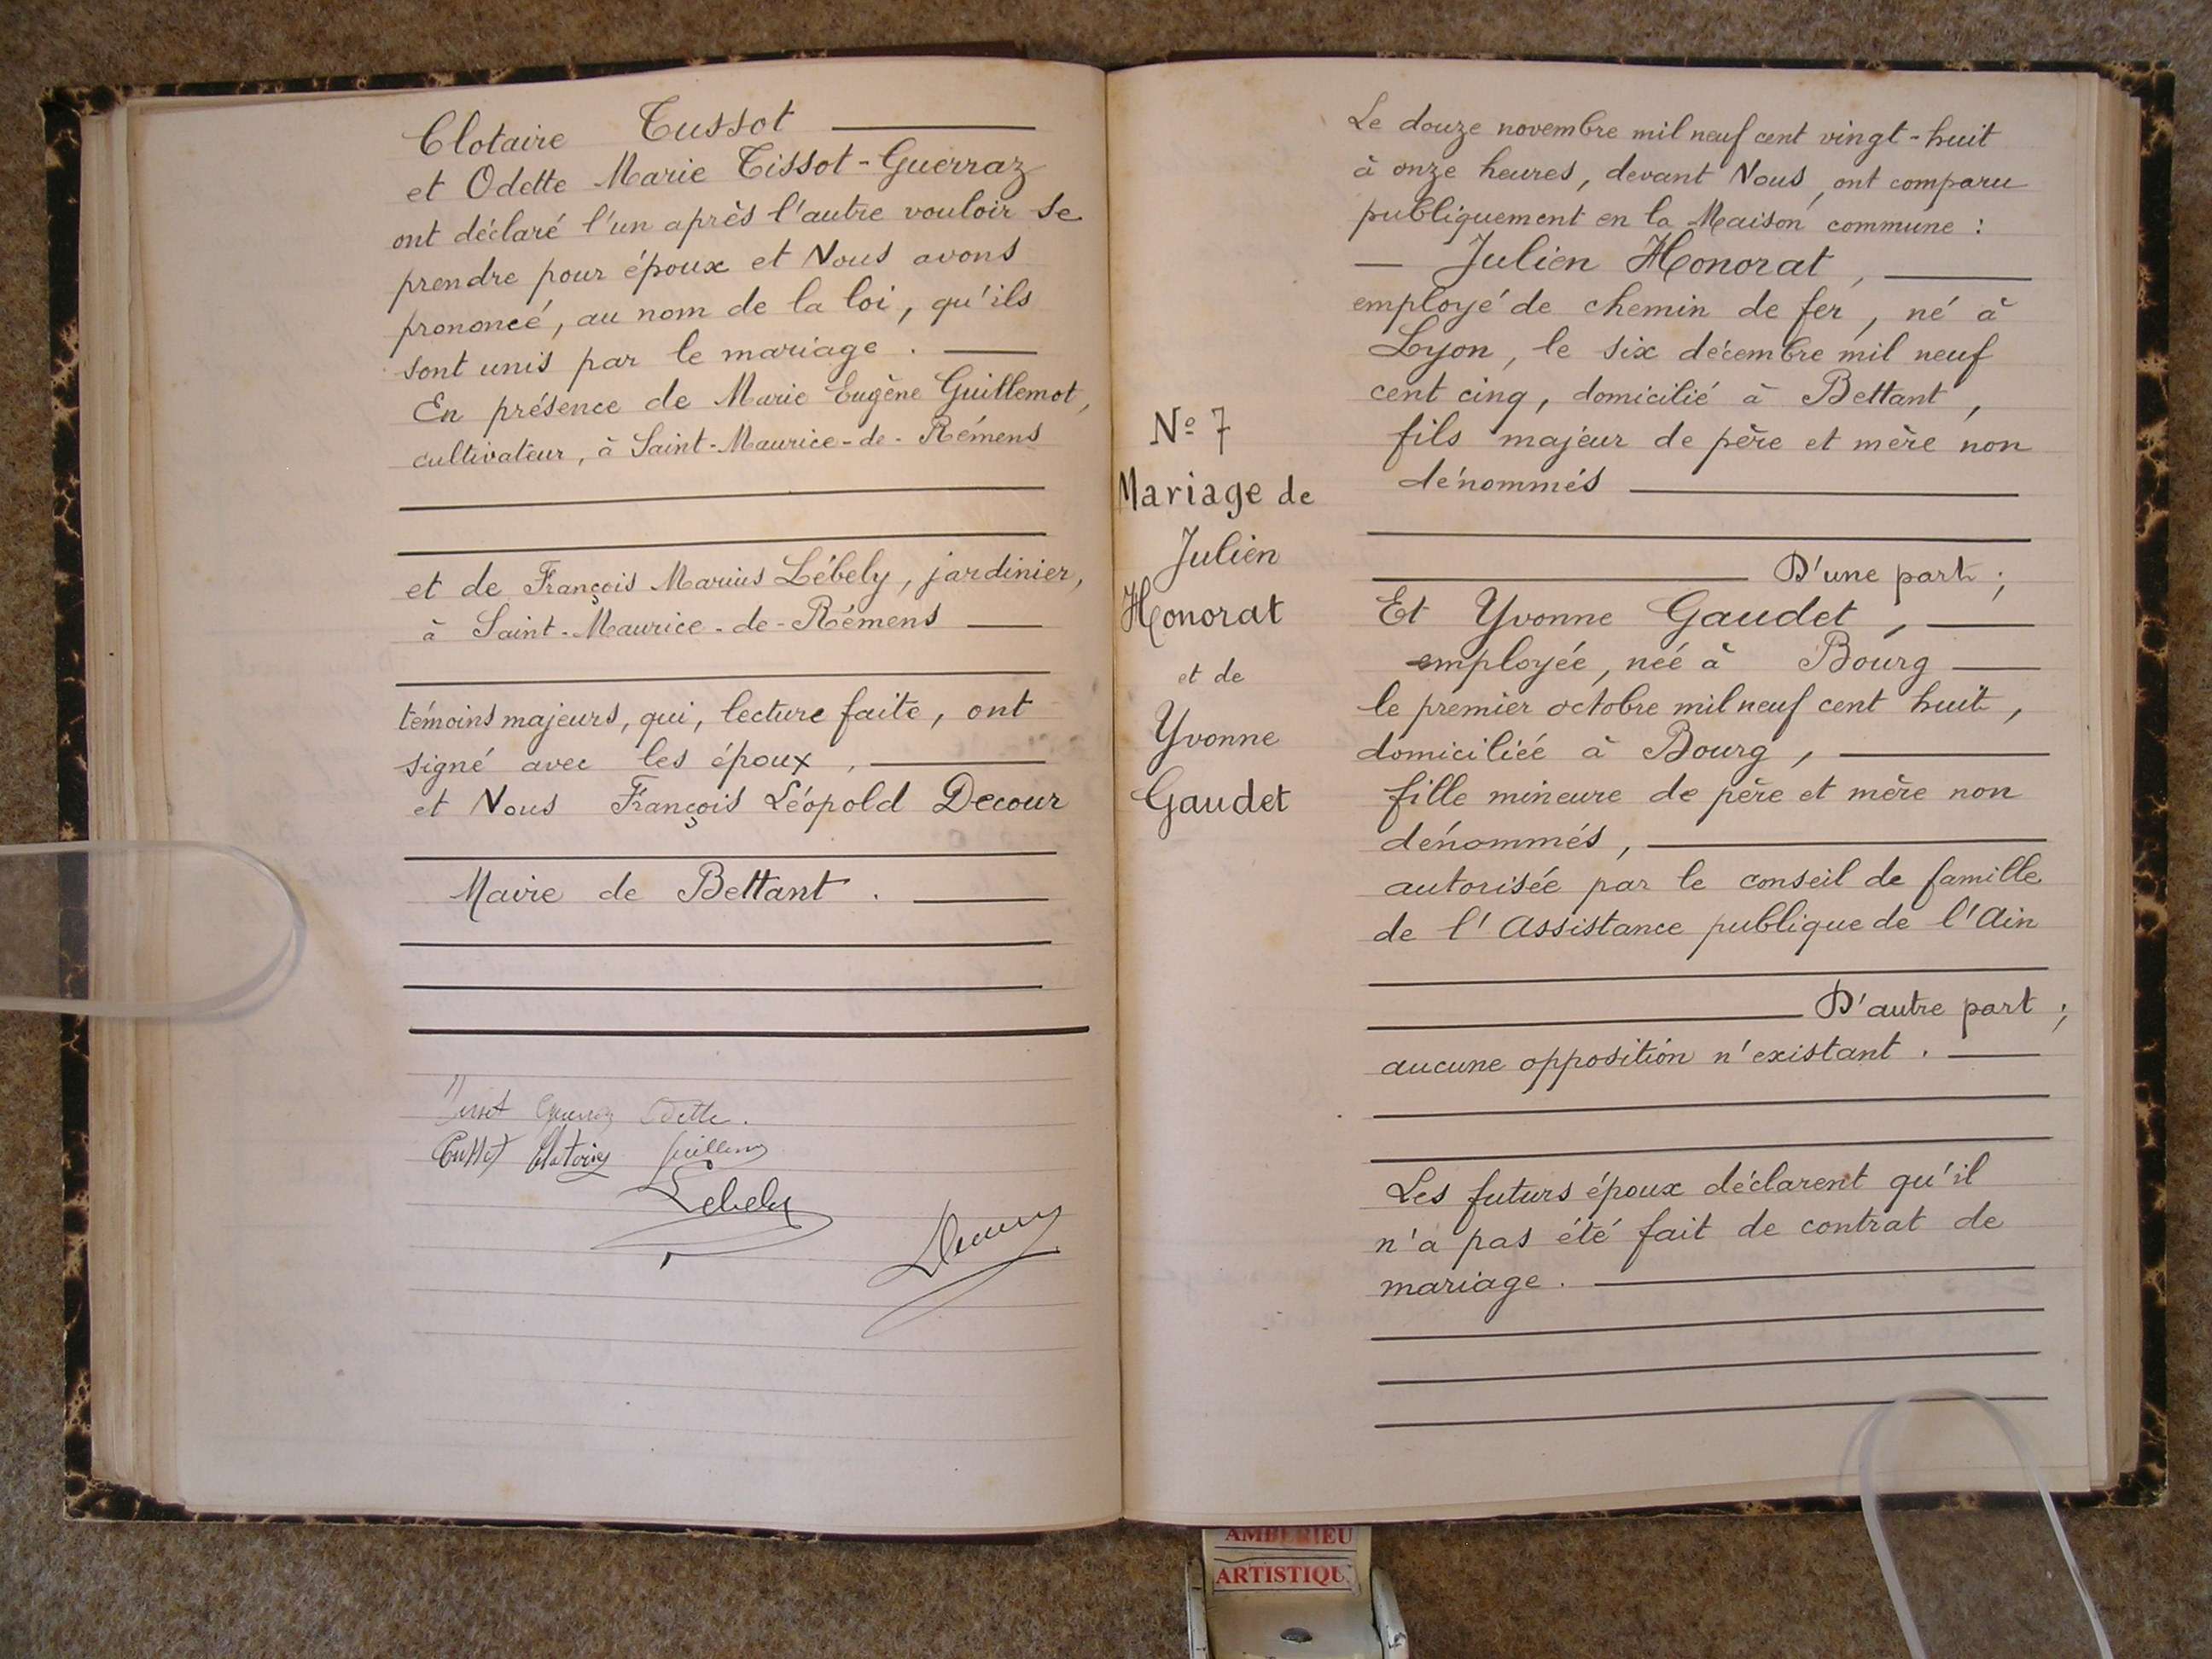 Clotaire Tussot
et Odette Marie Tissot-Guerraz
ont déclaré l'un après l'autre vouloir se
prendre pour époux et Nous avons
prononcé, au nom de la loi, qu'ils
sont unis par le mariage.
En présence de Marie Eugène Guillemot,
cultivateur, à Saint-Maurice-de-Rémens
et de François Marius Lébely, jardinier,
à Saint-Maurice-de-Rémens
témoins majeurs, qui, lecture faite, ont
signé avec les époux,
et Nous François Léopold Decour
Maire de Bettant.
Odette.
Lebely
N° 7
Mariage de
Julien
Honorat
et de
Yvonne
Gaudet
Le douze novembre mil neuf cent vingt-huit
à onze heures, devant Nous, ont comparu
publiquement en la Maison commune :
Julien Honorat,
employé de chemin de fer, né à
Lyon, le six décembre mil neuf
cent cinq, domicilié à Bettant,
fils majeur de père et mère non
dénommés
D'une part ;
Et Yvonne Gaudet,
employée, née à Bourg
le premier octobre mil neuf cent huit,
domiciliée à Bourg,
fille mineure de père et mère non
dénommés,
autorisée par le conseil de famille
de l'Assistance publique de l'Ain
D'autre part ;
aucune opposition n'existant.
Les futurs époux déclarent qu'il
n'a pas été fait de contrat de
mariage.
AMBERIEU
ARTISTIQU